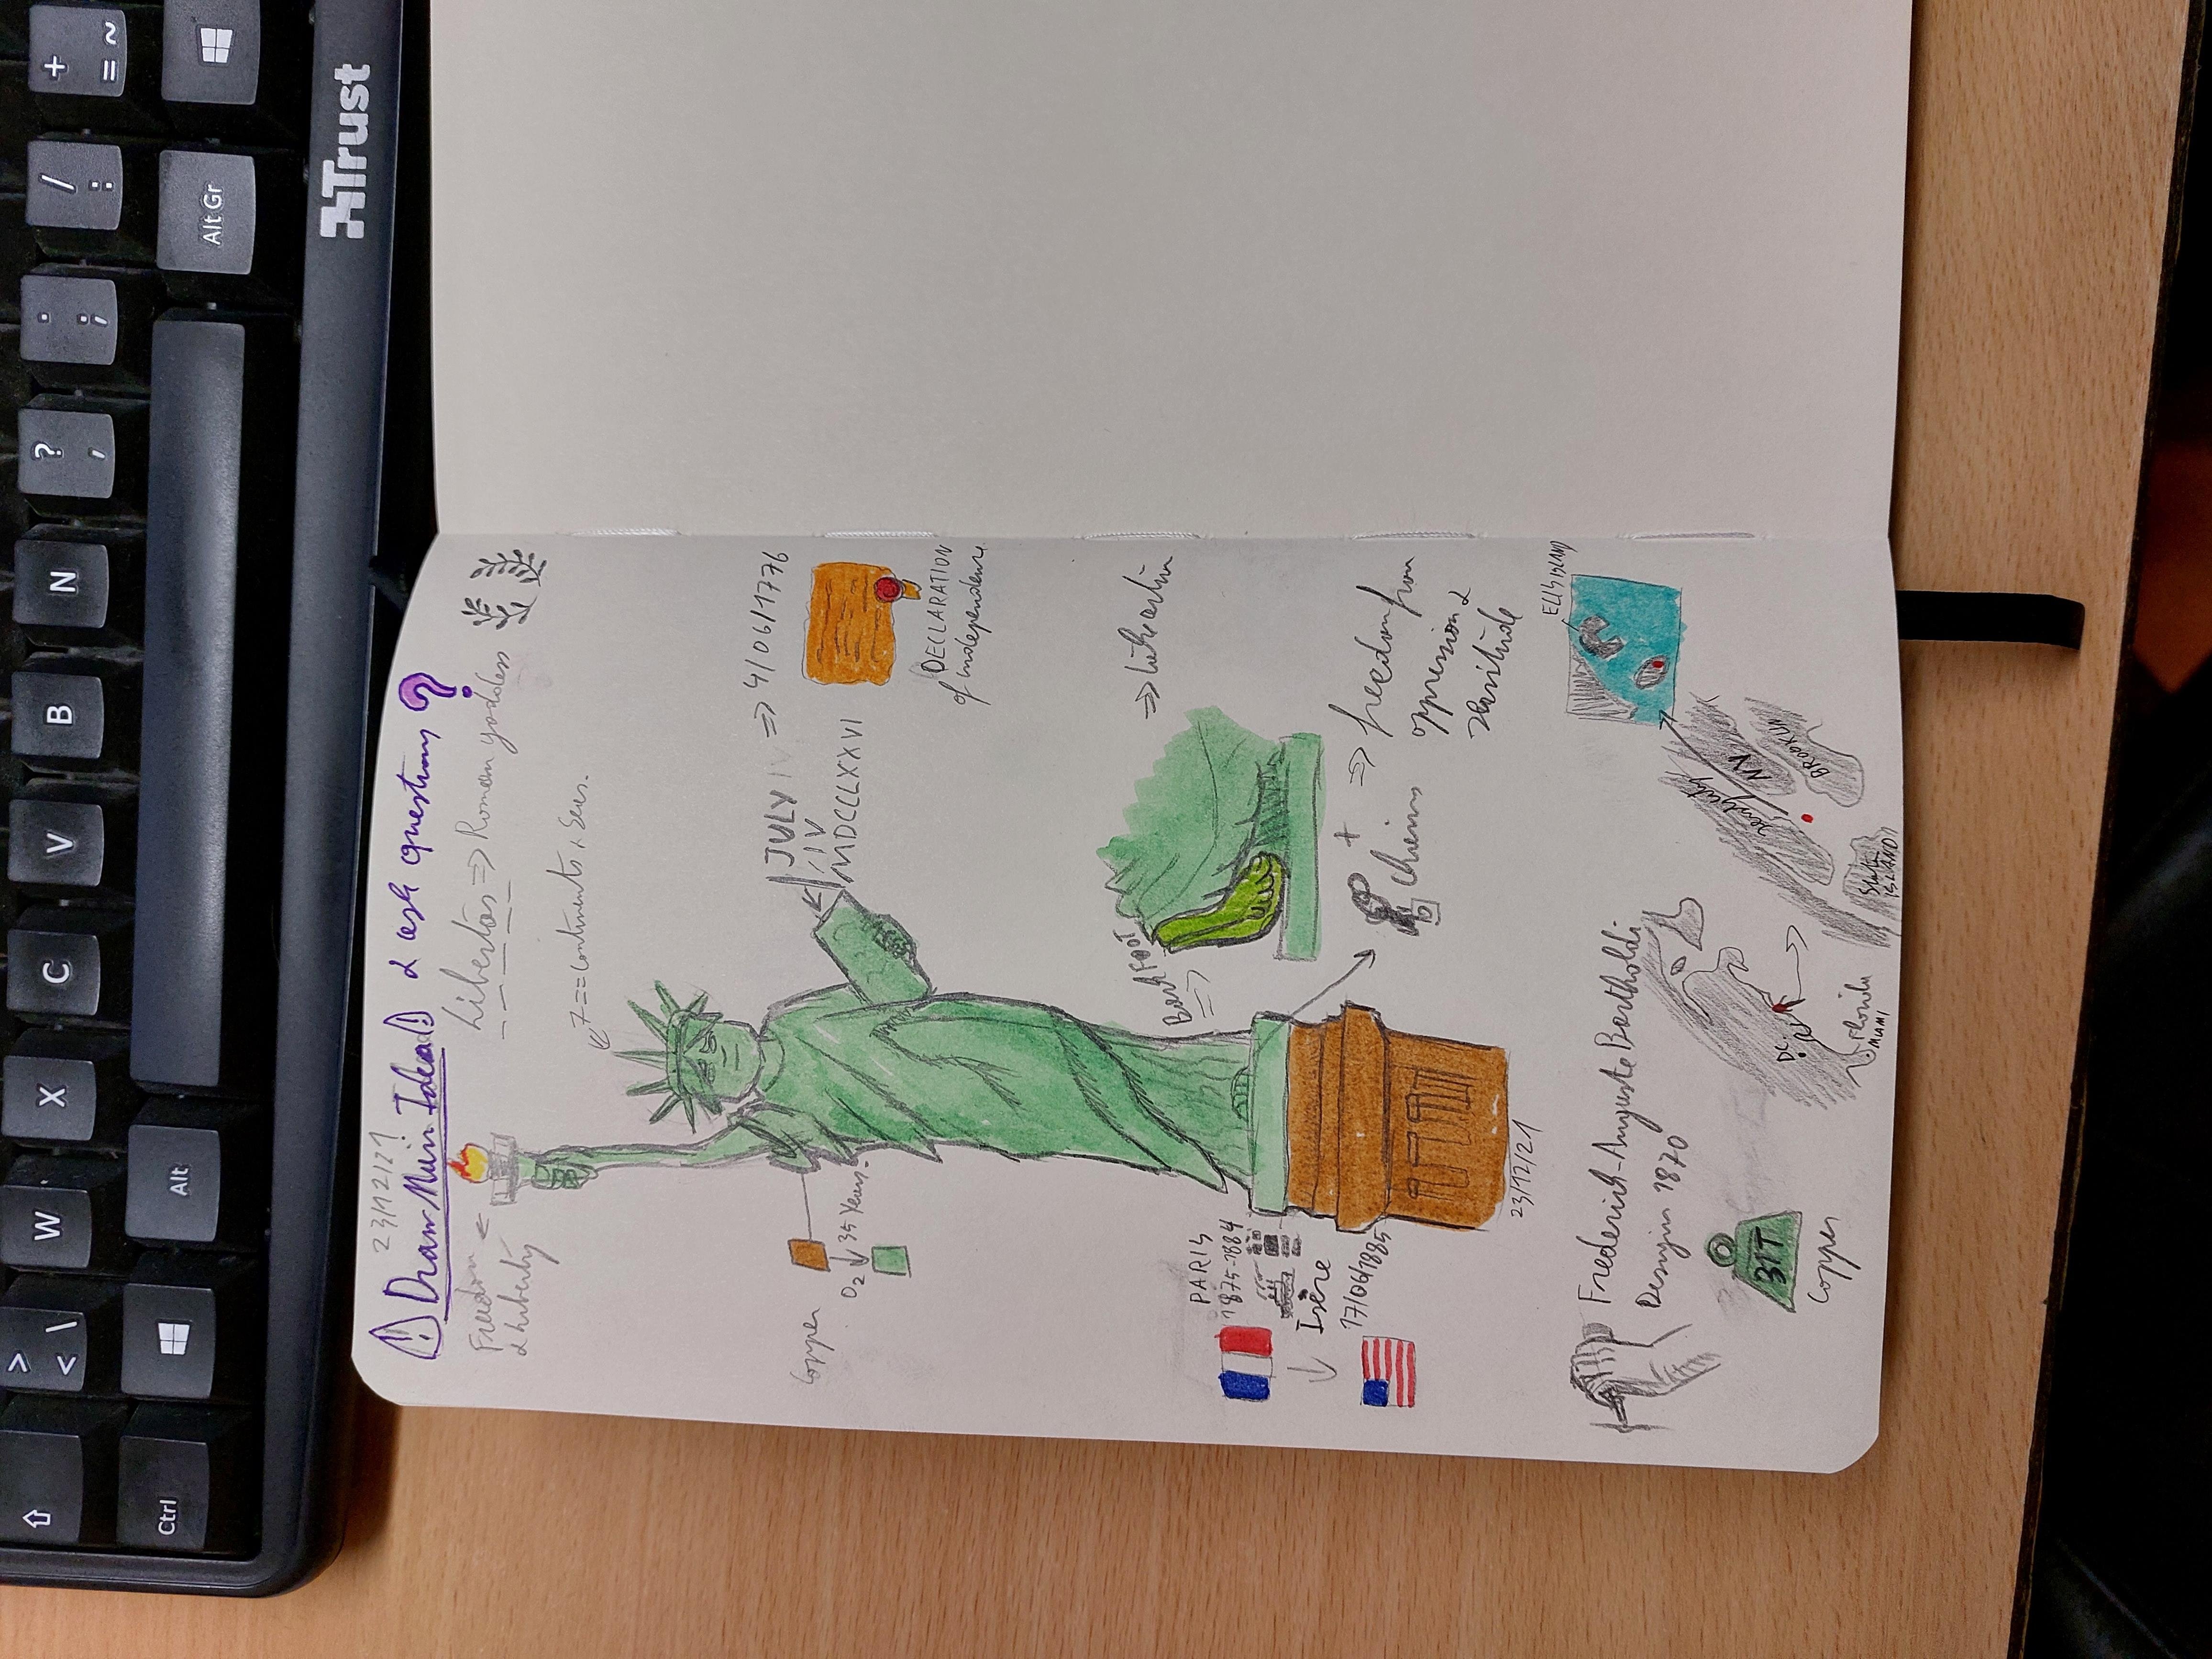 23/12/21
Draw Main Idea & ask questions?
Libertas => Roman goddess
Freedom
& liberty
7 == continents & Seas.
JULY IV
MDCCLXXVI
=> 4/06/1776
DECLARATION
of independence
Copper
O2 35 Years.
Back FOOT
=>
chains
+
=> freedom from
oppression &
PARIS
1875-1884
Isère
17/06/1885
23/12/21
Frederich-Auguste Bartholdi
Design 1870
31T
Copper
DC
Florida
MIAMI
NY
BROOKLIN
ISLAND
ELIS ISLAND
Trust
+
= ~
/
:
.
;
?
,
N
B
V
C
X
W
>
< \
Alt Gr
Alt
Ctrl